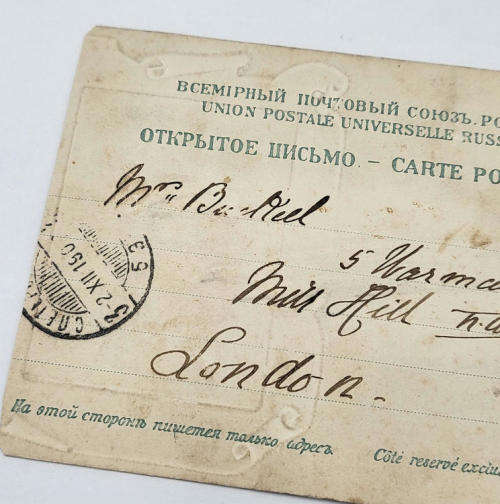 ВСЕМІРНЫЙ ПОЧТОВЫЙ СОЮЗЪ. РО
UNION POSTALE UNIVERSELLE RUSS
ОТКРЫТОЕ ПИСЬМО. – CARTE PO
Mrs
5
Mill Hill n.w
London.
2 XII 190
На этой сторонѣ пишется только адресъ.
Côté reservé exclus